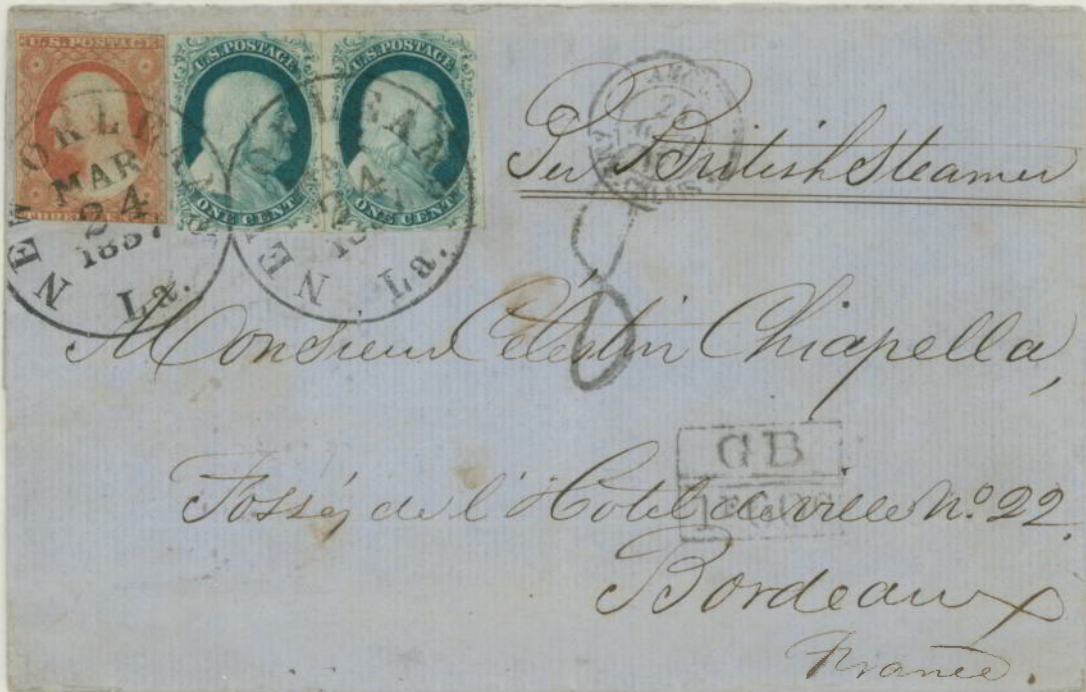 U.S. POSTAGE
U.S. POSTAGE
U.S. POSTAGE
ONE CENT
ONE CENT
NEW ORLEANS
MAR
24
1857
La.
NEW ORLEANS
24
La.
Per British Steamer
8
Monsieur Célestin Chiapella,
GB
1F60C
Fossés de l'Hotel de ville No. 22
Bordeaux
France.